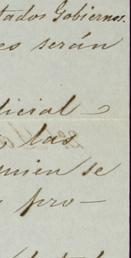 tados Gobiernos.
es serán
icial
las
uien se
pro-